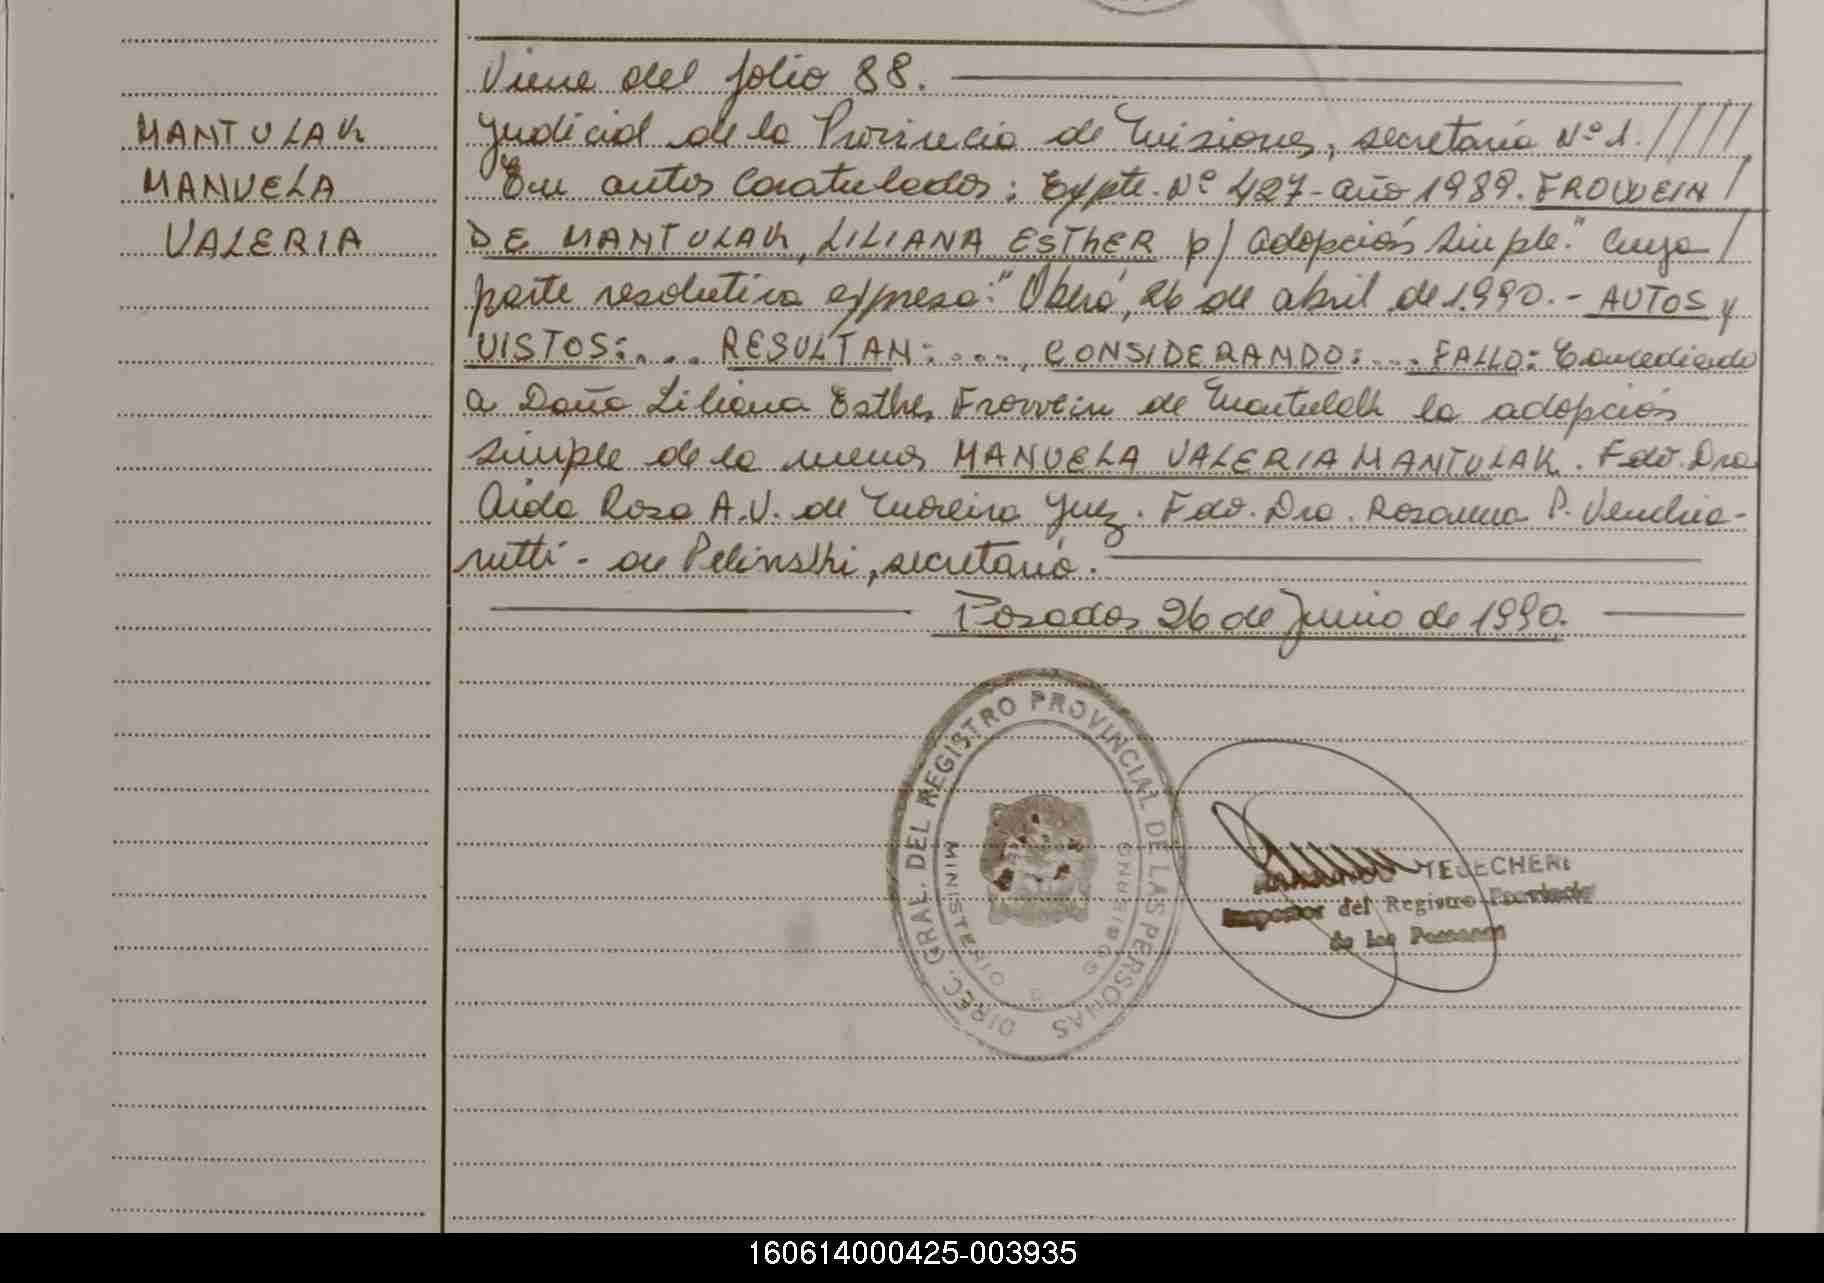 Viene del folio 88.
MANTULAK
MANUELA
VALERIA
Judicial de la Provincia de Misiones, secretaría Nº 1.////
"En autos Caratulados: Expte. Nº 427-año 1989. FROWEIN /
DE MANTULAK, LILIANA ESTHER p/ adopción simple." Cuya /
parte resolutiva expresa: "Oberá, 26 de abril de 1.990.- AUTOS y
VISTOS:.... RESULTAN:...., CONSIDERANDO:.... FALLO: Concediendo
a Doña Liliana Esther Frowein de Mantulak la adopción
simple de la menor MANUELA VALERIA MANTULAK. Fdo. Dra
Aida Rosa A.V. de Moreira Juez. Fdo. Dra. Rosanna P. Venchia-
rutti - de Pelinski, secretaria.
Posadas 26 de Junio de 1990.
DIREC. GRAL. DEL REGISTRO PROVINCIAL DE LAS PERSONAS
MINISTERIO D GOBIERNO
TELECHERI
Inspector del Registro Provincial
de las Personas
160614000425-003935